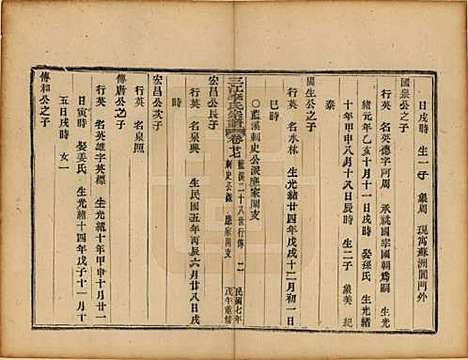 日戌時 生一子 象周 現寓蘇洲閶門外
國泉公之子
行英 名英德字阿周 承祧國宗國朝爲嗣 生光
緒元年乙亥十月十一日戌時 娶孫氏 生光緒
十年甲申八月十八日辰時 生二子 象美 紀
泰
國生公之子
行英 名水林 生光緒廿四年戊戌十二月初一日
時
○藍溪刺史公派應家園支
三江李氏宗譜 卷廿七 藍溪二十八世行傳 二
刺史公派 應家園支
民國七年
戊午重修
宏昌公長子
行英 名泉興 生民國五年丙辰六月廿八日戌
時
宏昌公次子
行英 名泉照
傳唐公之子
行英 名英雄字英標 生光緒十年甲申十月廿一
五日戌時 娶姜氏 生光緒十四年戊子十一月
女一
傳和公之子